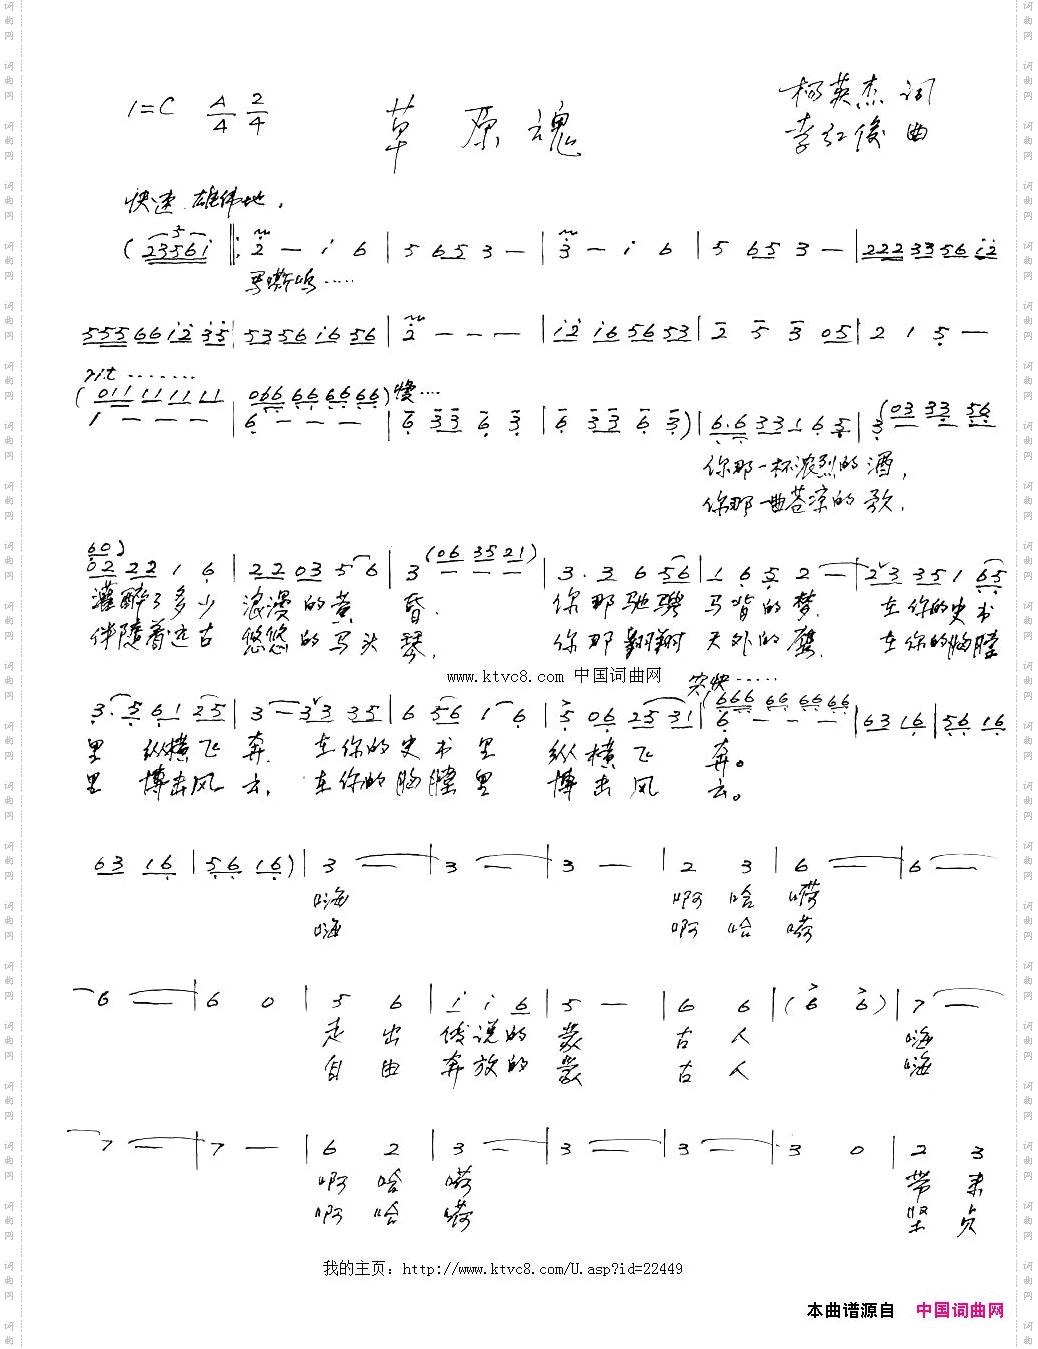 1=C 4/4 2/4 草原魂 杨英杰 词
李红俊 曲
快速 雄伟地.
(23561 ‖: 2 — i 6 | 5 653 — | 3 — i 6 | 5 653 — | 222 33 56 i2
马嘶鸣……
555 66 i2 35 | 5356 i6 56 | 2 — — — | i2 i6 56 53 | 2 5 3 05 | 2 1 5 —
rit........
(011 11 11 11 | 066 66 66 66) 慢…
1 — — — | 6 — — — | 6 33 6 3 | 6 33 6 3) | 6·6 33 1 6 5 | 3 (03 33 56
你那一杯浓烈的酒,
你那一曲苍凉的歌.
60)
02 22 1 6 | 22 03 5 6 | 3 (06 35 21) | 3·3 6 56 | 1 6 5 2 — | 23 35 1 65
灌醉了多少 浪漫的黄昏. 你那驰骋马背的梦. 在你的史书
伴随着远古 悠悠的马头琴. 你那翱翔天外的鹰. 在你的胸膛
www.ktvc8.com 中国词曲网
突快……
(666 66 66 66
3·5 61 25 | 3 — 33 35 | 6 56 1 6 | 5 06 25 31 | 6 — — — | 63 16 | 56 16
里 纵横飞奔. 在你的史书里 纵横飞奔。
里 搏击风云. 在你的胸膛里 搏击风云。
63 16 | 56 16) | 3 — | 3 — | 3 — | 2 3 | 6 — | 6 —
嗨 啊哈嗬
嗨 啊哈嗬
6 — | 6 0 | 5 6 | i i 6 | 5 — | 6 6 | (6 6) | 7 —
走出传说的蒙古人 嗨
自由奔放的蒙古人 嗨
7 — | 7 — | 6 2 | 3 — | 3 — | 3 — | 3 0 | 2 3
啊哈嗬 带来
啊哈嗬 坚贞
我的主页：http://www.ktvc8.com/U.asp?id=22449
本曲谱源自 中国词曲网